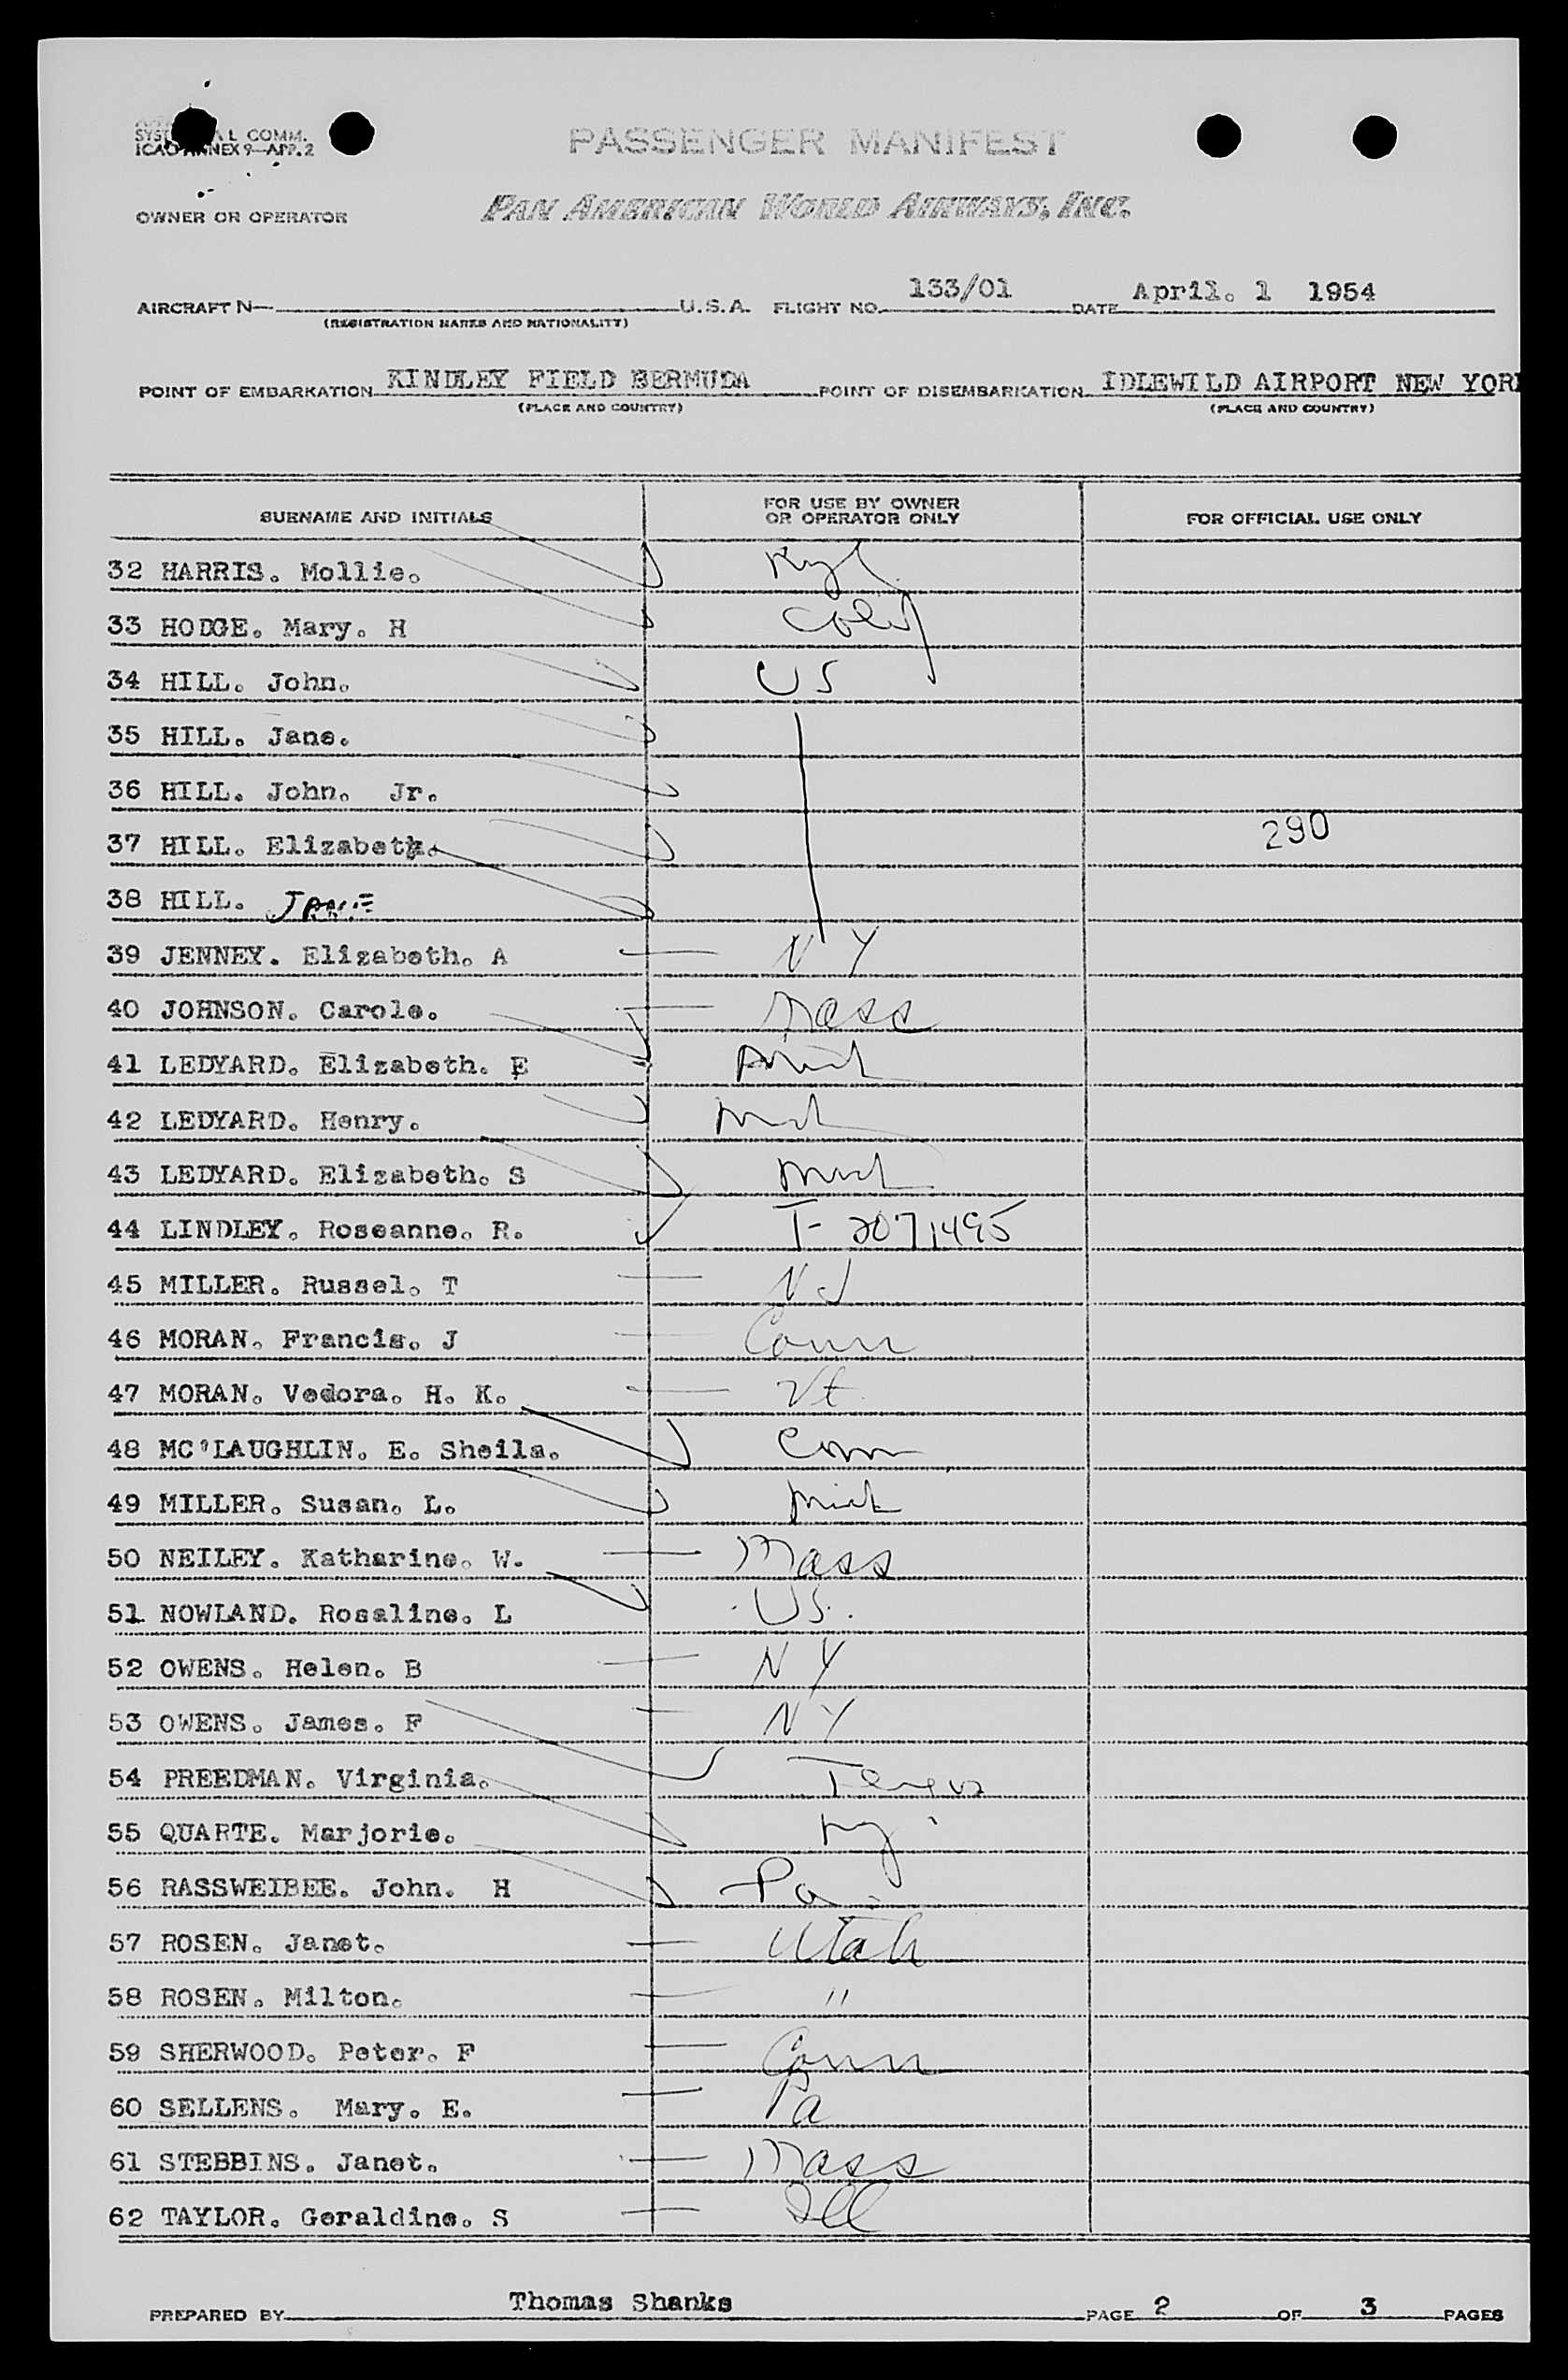 SYST AL COMM.
ICAO ANNEX 9—APP. 2
PASSENGER MANIFEST
OWNER OR OPERATOR PAN AMERICAN WORLD AIRWAYS, INC.
AIRCRAFT N— U.S.A. FLIGHT NO. 133/01 DATE April. 1 1954
(REGISTRATION MARKS AND NATIONALITY)
POINT OF EMBARKATION KINDLEY FIELD BERMUDA POINT OF DISEMBARKATION IDLEWILD AIRPORT NEW YOR
(PLACE AND COUNTRY) (PLACE AND COUNTRY)
SURNAME AND INITIALS FOR USE BY OWNER OR OPERATOR ONLY FOR OFFICIAL USE ONLY
32 HARRIS. Mollie.
33 HODGE. Mary. H
34 HILL. John. US
35 HILL. Jane.
36 HILL. John. Jr.
37 HILL. Elizabeth. 290
38 HILL. JANE
39 JENNEY. Elizabeth. A N Y
40 JOHNSON. Carole. Mass
41 LEDYARD. Elizabeth. E Mich
42 LEDYARD. Henry. Mich
43 LEDYARD. Elizabeth. S Mich
44 LINDLEY. Roseanne. R. T- 2071495
45 MILLER. Russel. T N J
46 MORAN. Francis. J Conn
47 MORAN. Vedora. H. K. Vt
48 MC'LAUGHLIN. E. Sheila. Conn
49 MILLER. Susan. L. Mich
50 NEILEY. Katharine. W. Mass
51 NOWLAND. Rosaline. L US.
52 OWENS. Helen. B N Y
53 OWENS. James. F N Y
54 PREEDMAN. Virginia.
55 QUARTE. Marjorie. NJ
56 RASSWEIBEE. John. H Pa
57 ROSEN. Janet. Utah
58 ROSEN. Milton. "
59 SHERWOOD. Peter. F Conn
60 SELLENS. Mary. E. Pa
61 STEBBINS. Janet. Mass
62 TAYLOR. Geraldine. S Ill
PREPARED BY Thomas Shanks PAGE 2 OF 3 PAGES